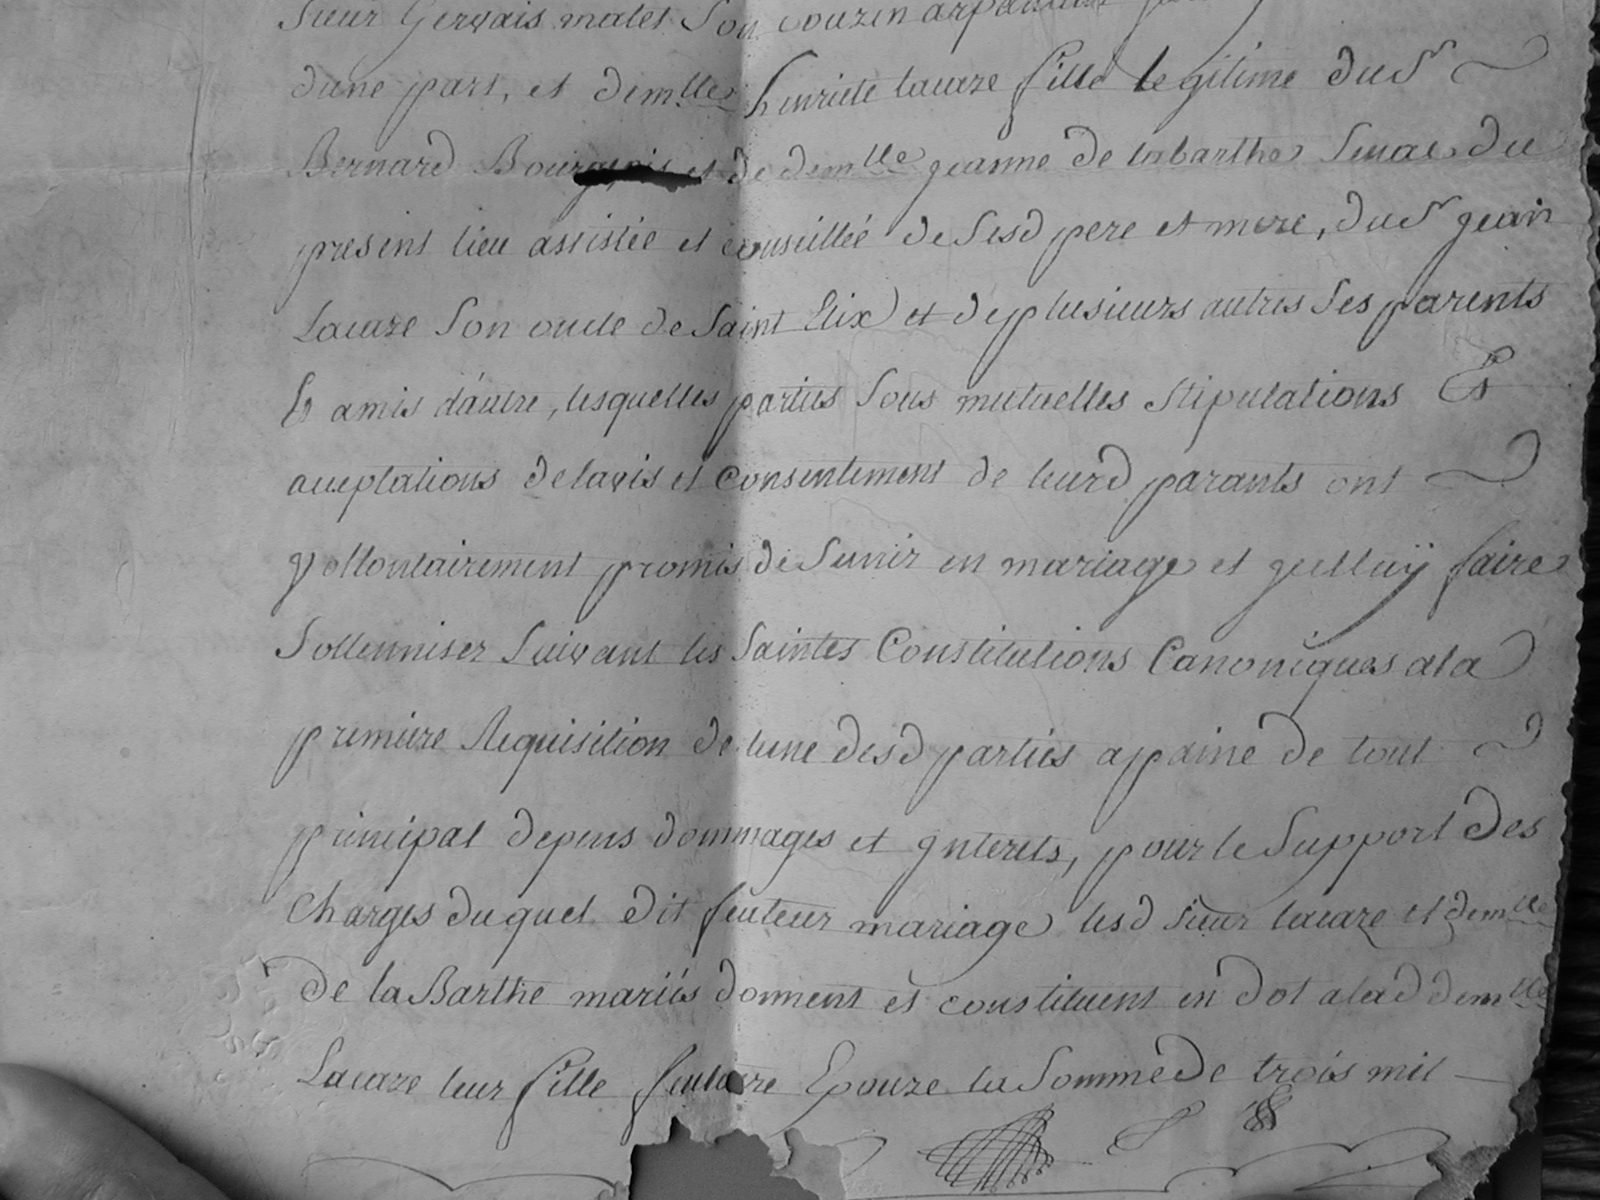 Sieur Gervais malet Son couzin arpanteur
dune part, et demlle henriete lacaze fille legitime du Sr
Bernard Bourgeois et de demlle jeanne de labarthe Senac du
present lieu assistée et conseillée de Sesd pere et mere, du Sr jean
Lacaze Son oncle de Saint Elix et de plusieurs autres Ses parents
Et amis dautre, lesquelles parties Sous mutuelles Stipulations Et
aceptations de lavis et Consentement de leurd parants ont
vollontairement promis de Sunir en mariage et jcelluÿ faire
Sollenniser Suivant les Saintes Constitutions Canoniques ala
premiere Requisition de lune desd parties appaine de tout
principal depens dommages et jnterets, pour le Support des
Charges duquel dit feuteur mariage lesd Sieur lacaze et demlle
de la Barthe mariés donnent et constituent en dot alad demlle
Lacaze leur fille feutere Epouze la Somme de trois mil